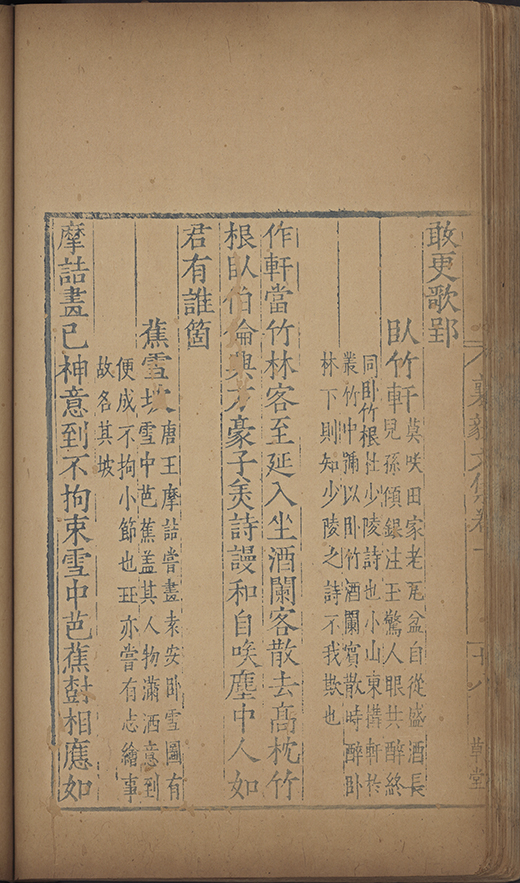 襄毅文集卷一 十八 草堂
敢更歌郢
臥竹軒
莫咲田家老瓦盆自從盛酒長
兒孫傾銀注玉驚人眼共醉終
同卧竹根杜少陵詩也小山東構軒於
叢竹中以卧竹酒闌賓散時醉卧
林下則知少陵之詩不我欺也
作軒當竹林客至延入坐酒闌客散去高枕竹
根臥伯倫與方豪子矣詩謾和自唉塵中人如
君有誰箇
蕉雪坡
唐王摩詰嘗畫袁安卧雪圖有
雪中芭蕉蓋其人物瀟洒意到
便成不拘小節也玨亦嘗有志繪事
故名其坡
摩詰畫已神意到不拘束雪中芭蕉樹相應如